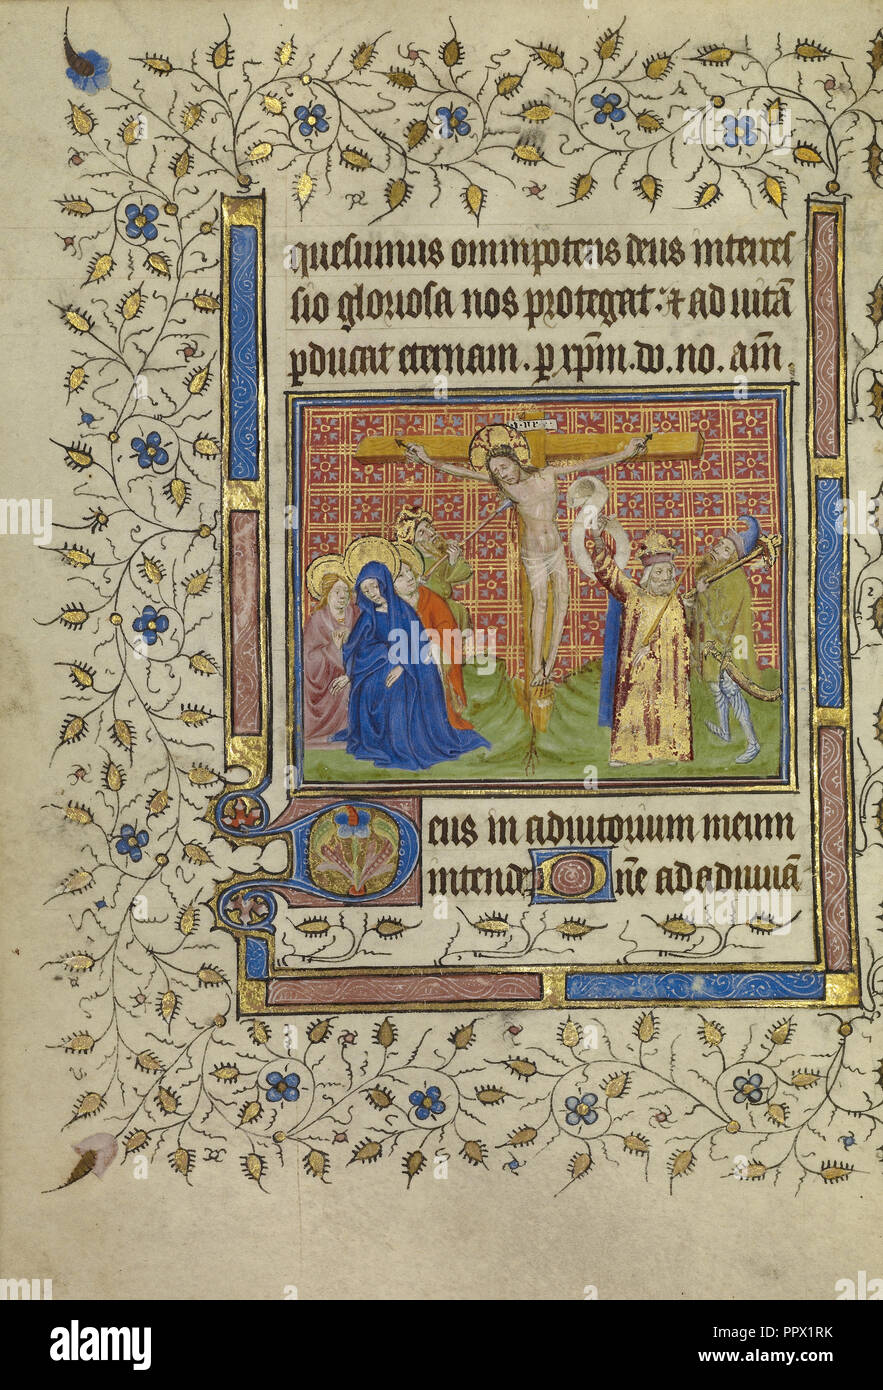 quesumus omnipotens deus interces
sio gloriosa nos protegat. & ad uitā
ꝑducat eternam. ꝑ xp̄m. dn̄. no. am̄.
Deus in adiutorium meum
intende Dn̄e ad adiuuā
alamy
Image ID: PPX1RK
www.alamy.com